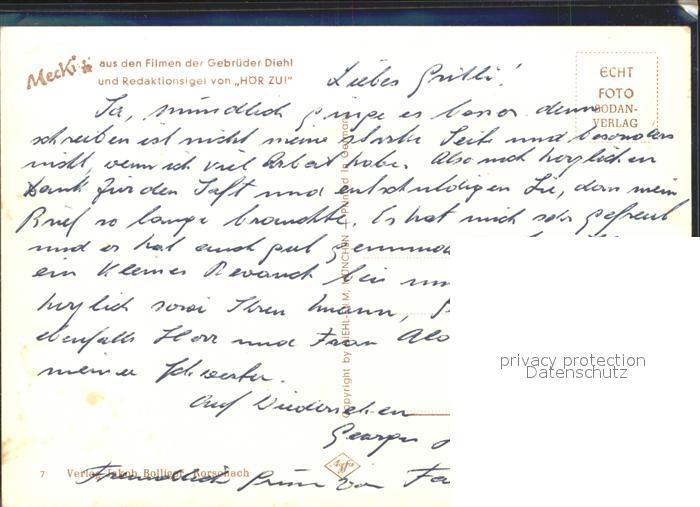 Mecki aus den Filmen der Gebrüder Diehl
und Redaktionsigel von „HÖR ZU!"
ECHT
FOTO
SODAN-
VERLAG
Liebes Gritli!
Ja, mündlich ginge es besser, denn
schreiben ist nicht meine starke Seite und besonders
nicht, wenn ich viel Arbeit habe. Also noch herzlichen
Dank für den Saft und entschuldigen Sie, dass mein
Brief so lange brauchte. Es hat mich sehr gefreut
und er hat auch gut
ein kleines Revanch bei
herzlich sowie Ihren Mann,
ebenfalls Herr und Frau
meiner Schwester.
Auf Wiedersehen
Copyright by DIEHL-FILM, MÜNCHEN — Printed in Germany
privacy protection
Datenschutz
Agfa
7 Verlag Jakob Bolliger, Rorschach
Freundlich Grüsse von